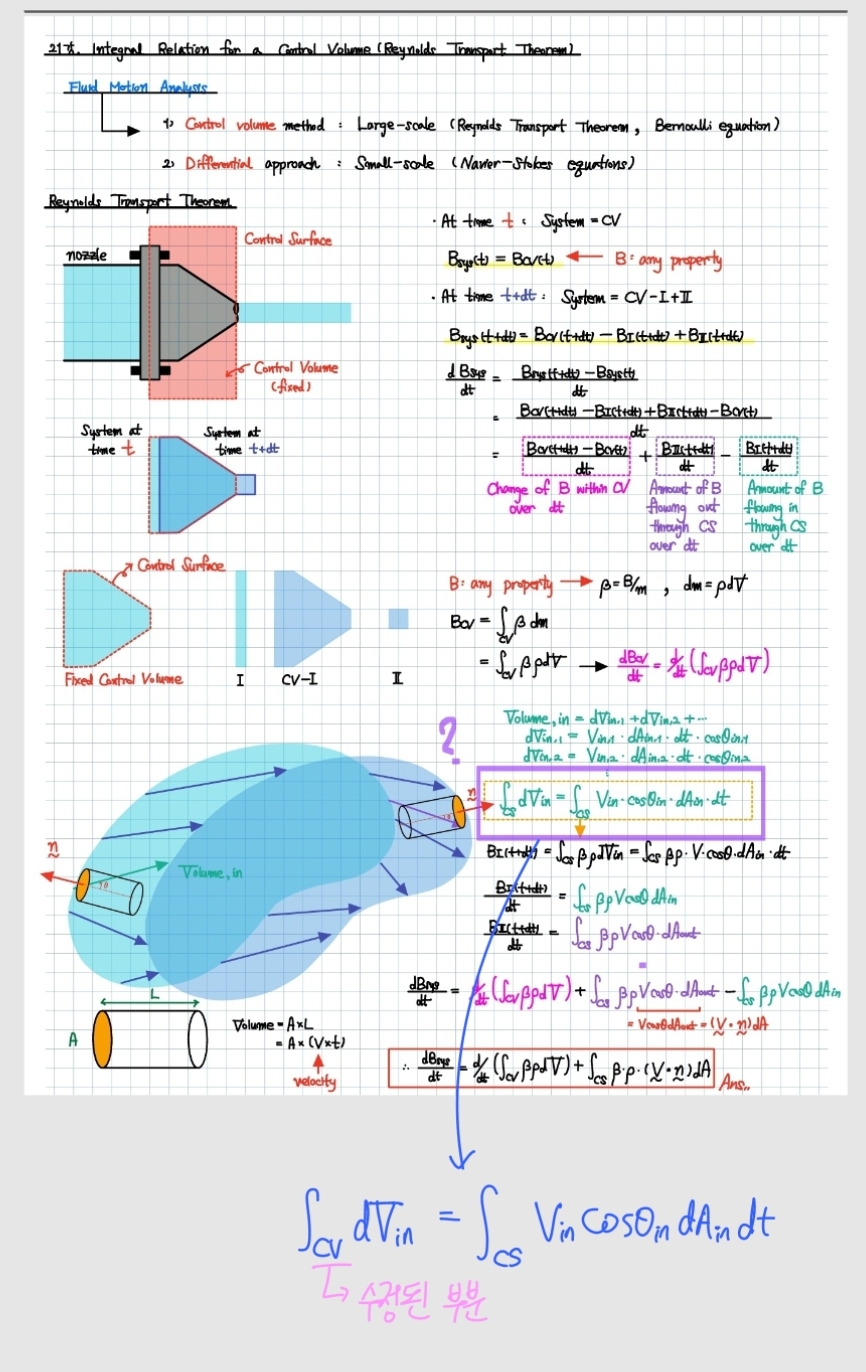 21강. Integral Relation for a Control Volume (Reynolds Transport Theorem)
Fluid Motion Analysis
1) Control volume method : Large-scale (Reynolds Transport Theorem, Bernoulli equation)
2) Differential approach : Small-scale (Navier-Stokes equations)
Reynolds Transport Theorem
nozzle
Control Surface
Control Volume
(fixed)
· At time t : System = CV
Bsys(t) = Bcv(t) ← B: any property
· At time t+dt : System = CV-I+II
Bsys(t+dt) = Bcv(t+dt) - BI(t+dt) + BII(t+dt)
dBsys/dt = Bsys(t+dt) - Bsys(t)/dt
= Bcv(t+dt) - BI(t+dt) + BII(t+dt) - Bcv(t)/dt
= Bcv(t+dt) - Bcv(t)/dt + BII(t+dt)/dt - BI(t+dt)/dt
Change of B within CV over dt
Amount of B flowing out through CS over dt
Amount of B flowing in through CS over dt
System at time t
System at time t+dt
Control Surface
Fixed Control Volume
I
CV-I
II
B: any property → β=B/m , dm=ρdV
Bcv = ∫cv β dm
= ∫cv βρdV → dBcv/dt = d/dt(∫cv βρdV)
Volume,in = dVin,1 + dVin,2 + ···
dVin,1 = Vin,1 · dAin,1 · dt · cosθin,1
dVin,2 = Vin,2 · dAin,2 · dt · cosθin,2
?
∫cs dVin = ∫cs Vin·cosθin·dAin·dt
n
n
θ
θ
Volume,in
BI(t+dt) = ∫cs βρdVin = ∫cs βρ·V·cosθ·dAin·dt
BI(t+dt)/dt = ∫cs βρVcosθ dAin
BII(t+dt)/dt = ∫cs βρVcosθ·dAout
dBsys/dt = d/dt(∫cv βρdV) + ∫cs βρVcosθ·dAout - ∫cs βρVcosθ dAin
= Vcosθ dAout = (V·n)dA
L
A
Volume = A×L
= A×(V×t)
velocity
∴ dBsys/dt = d/dt(∫cv βρdV) + ∫cs β·ρ·(V·n)dA
Ans..
∫CV dVin = ∫CS Vin cosθin dAin dt
↳ 수정된 부분